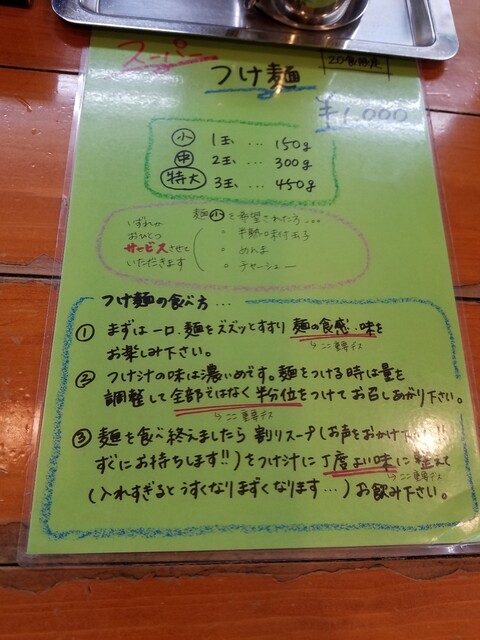 スーパー
つけ麺
20食限定
¥1,000
小 1玉 … 150g
中 2玉 … 300g
特大 3玉 … 450g
麺小を希望された方…
いずれか
おひとつ
サービスさせて
いただきます
。半熟味付玉子
。めんま
。チャーシュー
つけ麺の食べ方…
① まずは一口、麺をズズッとすすり 麺の食感・味を
↳ここ重要デス
お楽しみ下さい。
② つけ汁の味は濃いめです。麺をつける時は量を
調整して全部ではなく半分位をつけてお召しあがり下さい。
↳ここ重要デス
③ 麺を食べ終えましたら 割りスープ(お声をおかけ下さい!!
すぐにお持ちします!!)をつけ汁に丁度よい味に整えて
↳ここ重要デス
(入れすぎるとうすくなりまずくなります…)お飲み下さい。